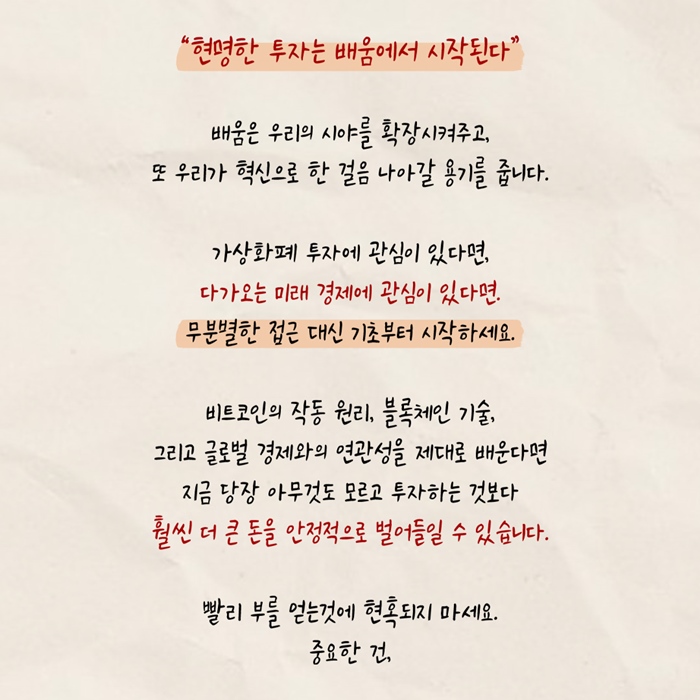 “현명한 투자는 배움에서 시작된다”
배움은 우리의 시야를 확장시켜주고,
또 우리가 혁신으로 한 걸음 나아갈 용기를 줍니다.
가상화폐 투자에 관심이 있다면,
다가오는 미래 경제에 관심이 있다면.
무분별한 접근 대신 기초부터 시작하세요.
비트코인의 작동 원리, 블록체인 기술,
그리고 글로벌 경제와의 연관성을 제대로 배운다면
지금 당장 아무것도 모르고 투자하는 것보다
훨씬 더 큰 돈을 안정적으로 벌어들일 수 있습니다.
빨리 부를 얻는것에 현혹되지 마세요.
중요한 건,